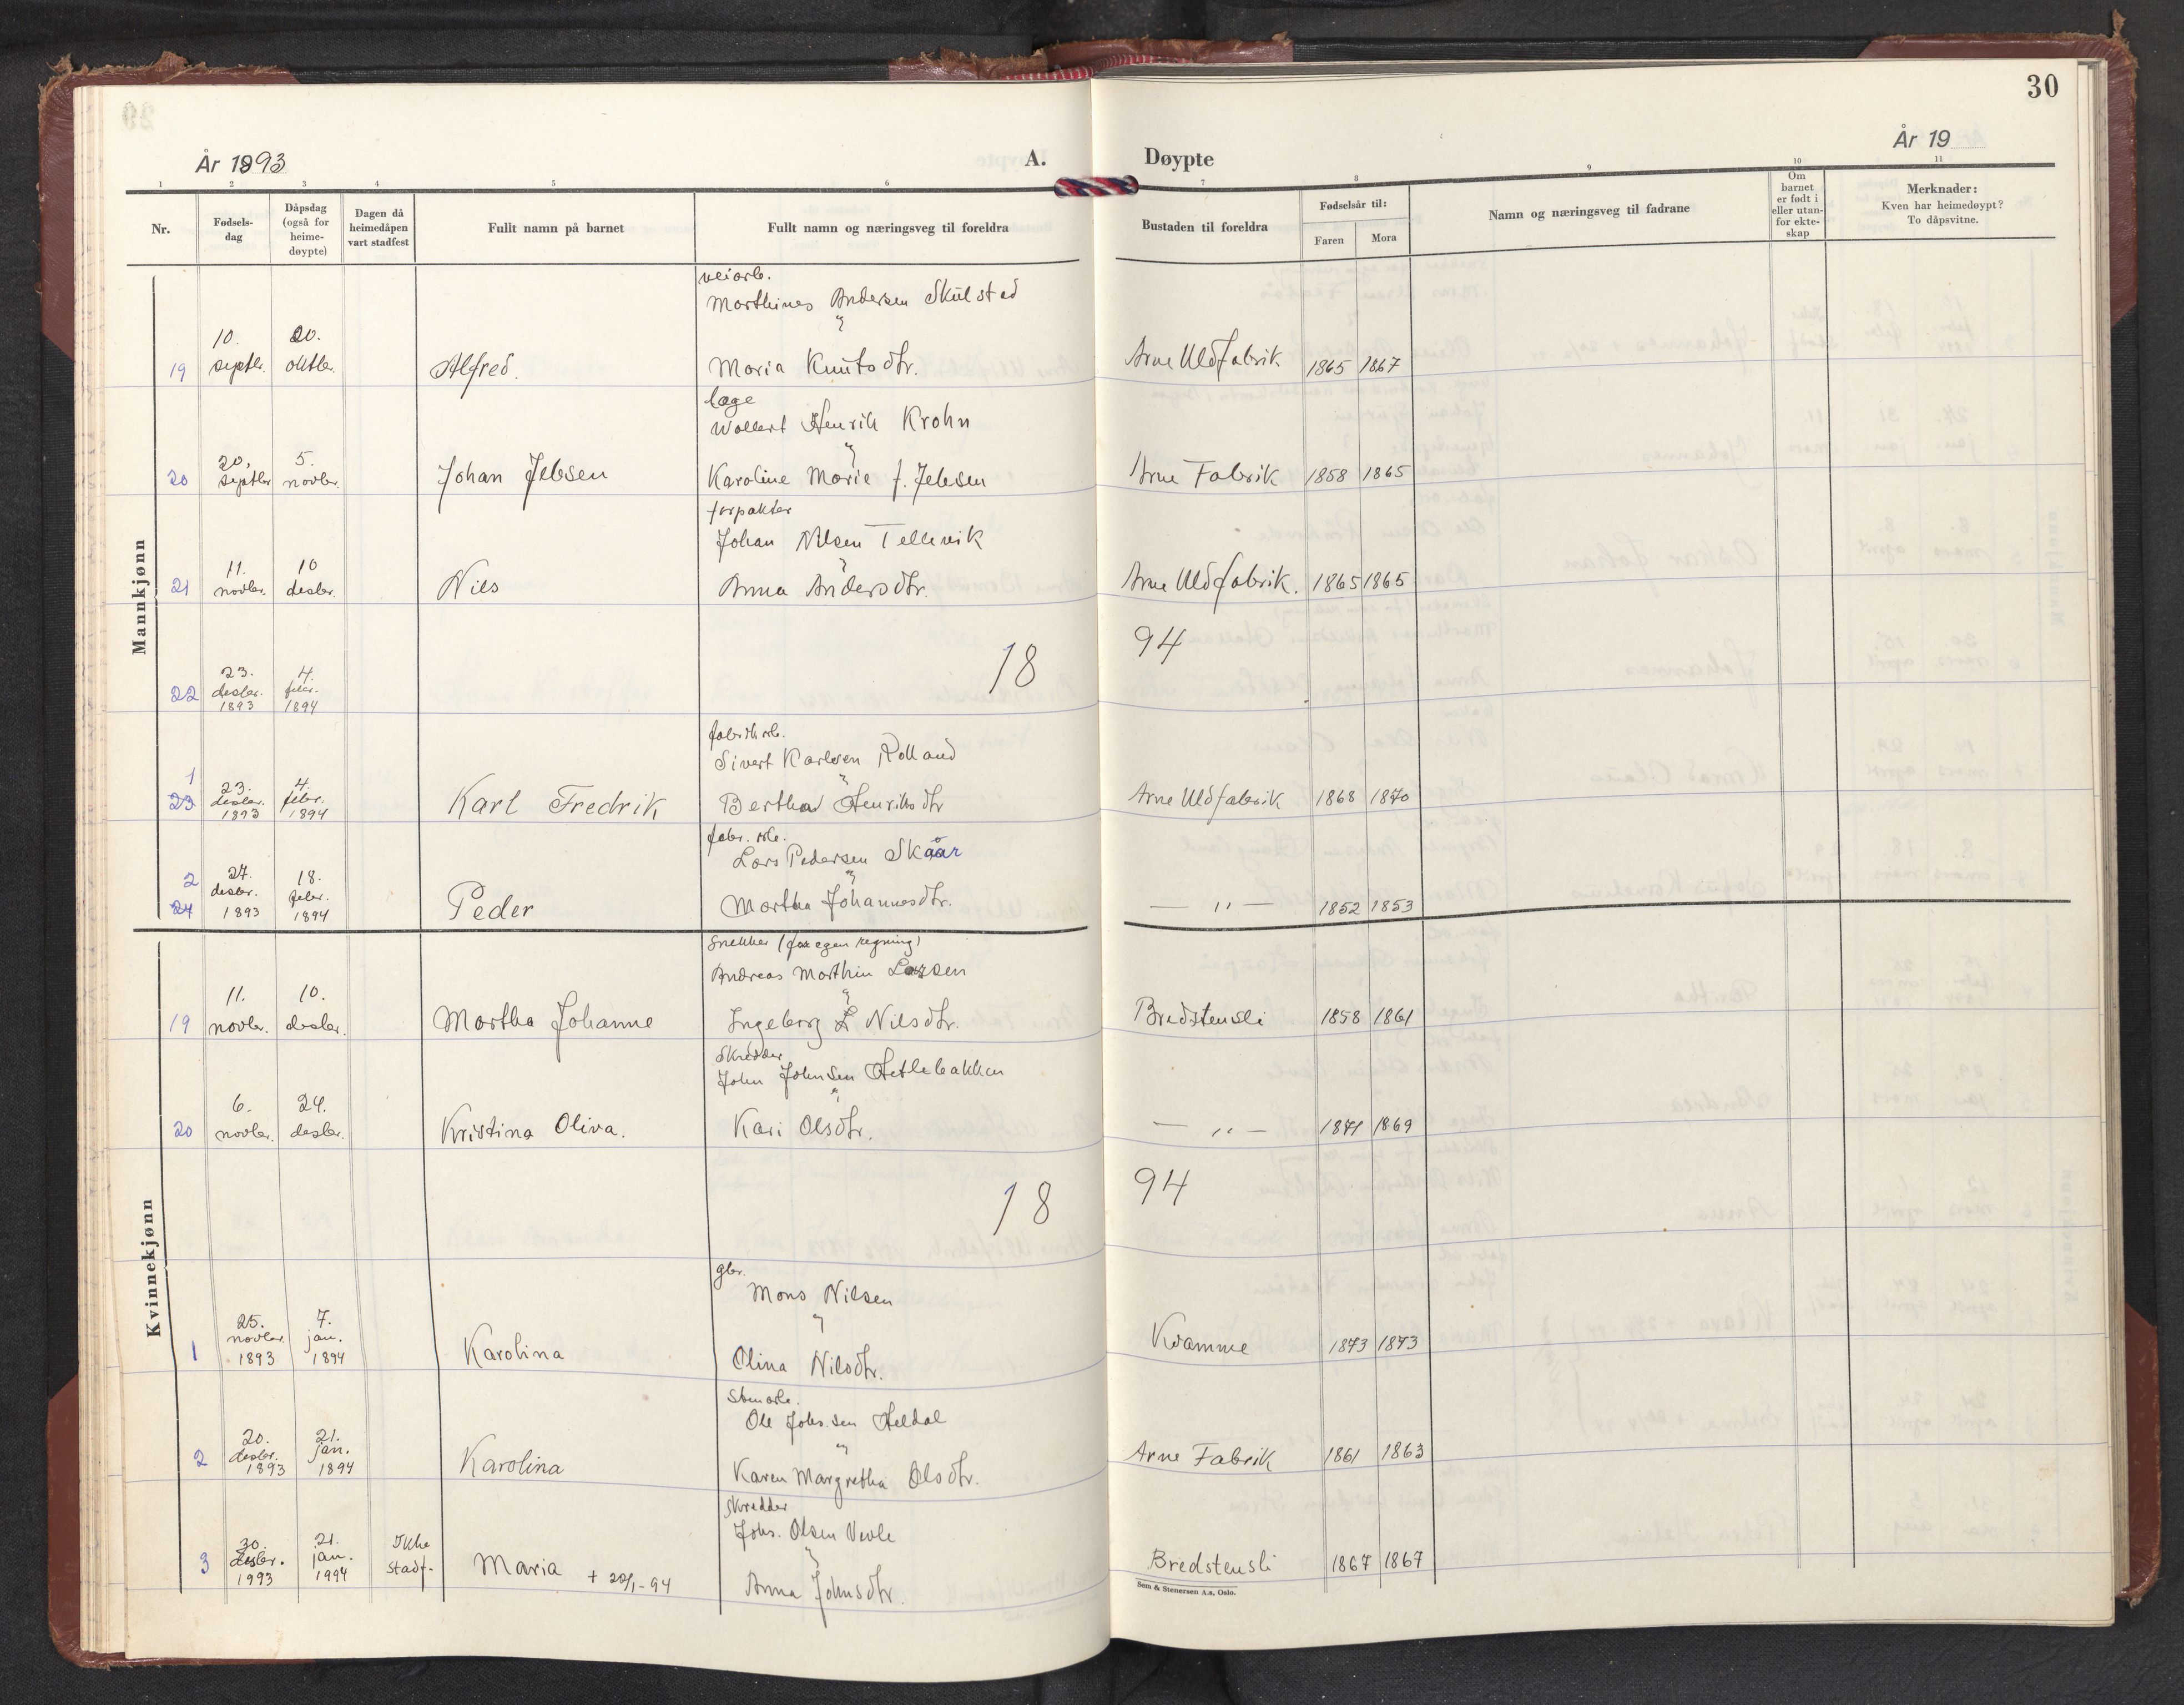 30
År 1893
A.
Døypte
År 19
1 2 3 4 5 6 7 8 9 10 11
Nr.
Fødsels-
dag
Dåpsdag
(også for
heime-
døypte)
Dagen då
heimedåpen
vart stadfest
Fullt namn på barnet
Fullt namn og næringsveg til foreldra
Bustaden til foreldra
Fødselsår til:
Faren
Mora
Namn og næringsveg til fadrane
Om
barnet
er født i
eller utan-
for ekte-
skap
Merknader:
Kven har heimedøypt?
To dåpsvitne.
Mankjønn
veiarb.
Marthines Andersen Skulstad
"
10. 20.
19 septbr. oktbr. Alfred. Maria Knutsdtr. Arne Uldfabrik 1865 1867
læge
Wollert Henrik Krohn
"
20. 5.
20 septbr novbr. Johan Jebsen Karoline Marie f. Jebsen Arne Fabrik 1858 1865
forpakter
Johan Nilsen Tellevik
"
11. 10
21 novbr. desbr. Nils Anna Andersdtr. Arne Uldfabrik. 1865 1865
18 94
23. 4.
22 desbr. febr.
1893 1894
fabrikarb.
Sivert Karlsen Rolland
"
1 23. 4.
23 desbr. febr. Karl Fredrik Bertha Henriksdtr Arne Uldfabrik 1868 1870
1893 1894
fabr. arb.
Lars Pedersen Skaar
"
2 27. 18.
desbr. febr.
24 1893 1894 Peder Martha Johannesdtr. — " — 1852 1853
Kvinnekjønn
Snekker (for egen regning)
Andreas Marthin Larsen
"
11. 10.
19 novbr. desbr. Martha Johanne Ingeborg L Nilsdtr. Bredstensli 1858 1861
Skredder
John Johnsen Hetlebakken
"
6. 24.
20 novbr. desbr. Kristina Oliva. Kari Olsdtr. — " — 1871 1869
18 94
gbr.
Mons Nilsen
"
25. 7.
novbr. jan.
1 1893 1894 Karolina Olina Nilsdtr. Kvamme 1873 1873
Stenarb.
Ole Johs.sen Heldal
"
20. 21.
2 desbr. jan. Karolina Karen Margretha Olsdtr. Arne Fabrik 1861 1863
1893 1894
Skredder
Johs. Olsen Vevle
"
30. 21. Ikke
3 desbr. jan. stadf. Maria + 22/1-94 Anna Johnsdtr. Bredstensli 1867 1867
1993 1994
Sem & Stenersen A.s, Oslo.